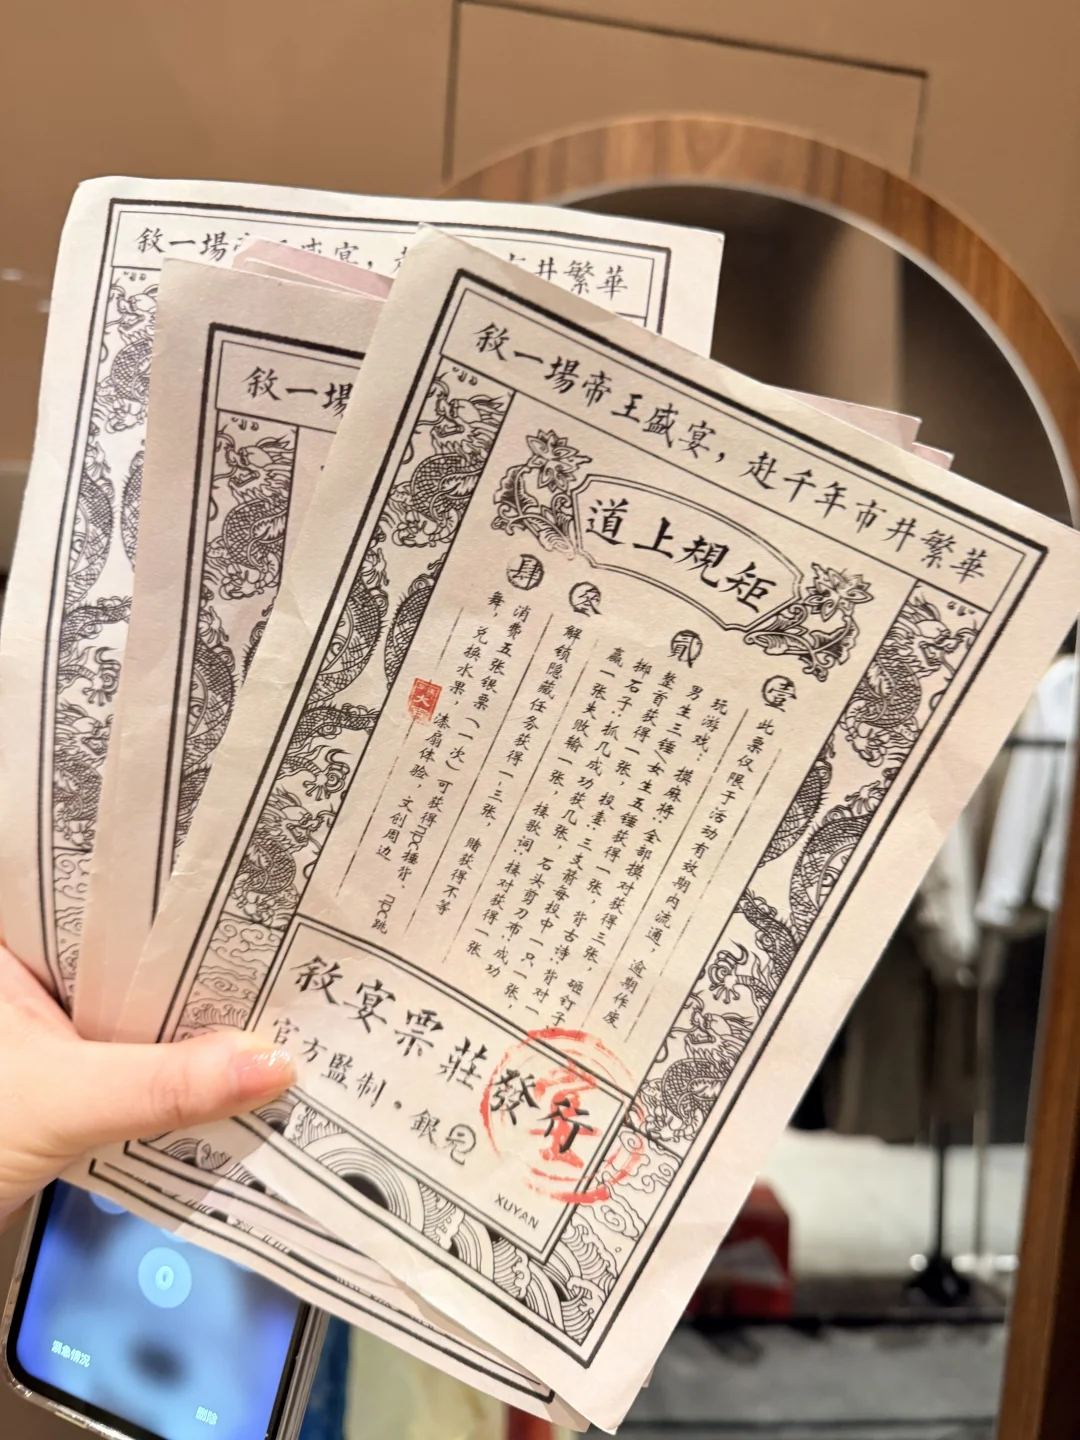 敘一場帝王盛宴，赴千年市井繁華
道上規矩
壹
此票仅限于活动有效期内流通，逾期作废
貳
玩游戏：摸麻将：全部摸对获得三张，砸钉子：
男生三锤/女生五锤获得一张，背古诗：背对一
整首获得一张，投壶：三支箭每投中一只一张，
掷石子：抓几成功获几张，石头剪刀布：成功
赢一张失败输一张，接歌词：接对获得一张
叄
解锁隐藏任务获得一-三张，赌获得不等
肆
消费五张银票（一次）可获得npc捶背、npc跳
舞，兑换水果，漆扇体验，文创周边
敘宴票莊發行
官方監制·銀元
XUYAN
敘一場
敘一場
盛宴，
市井繁華
紧急情况
0
删除